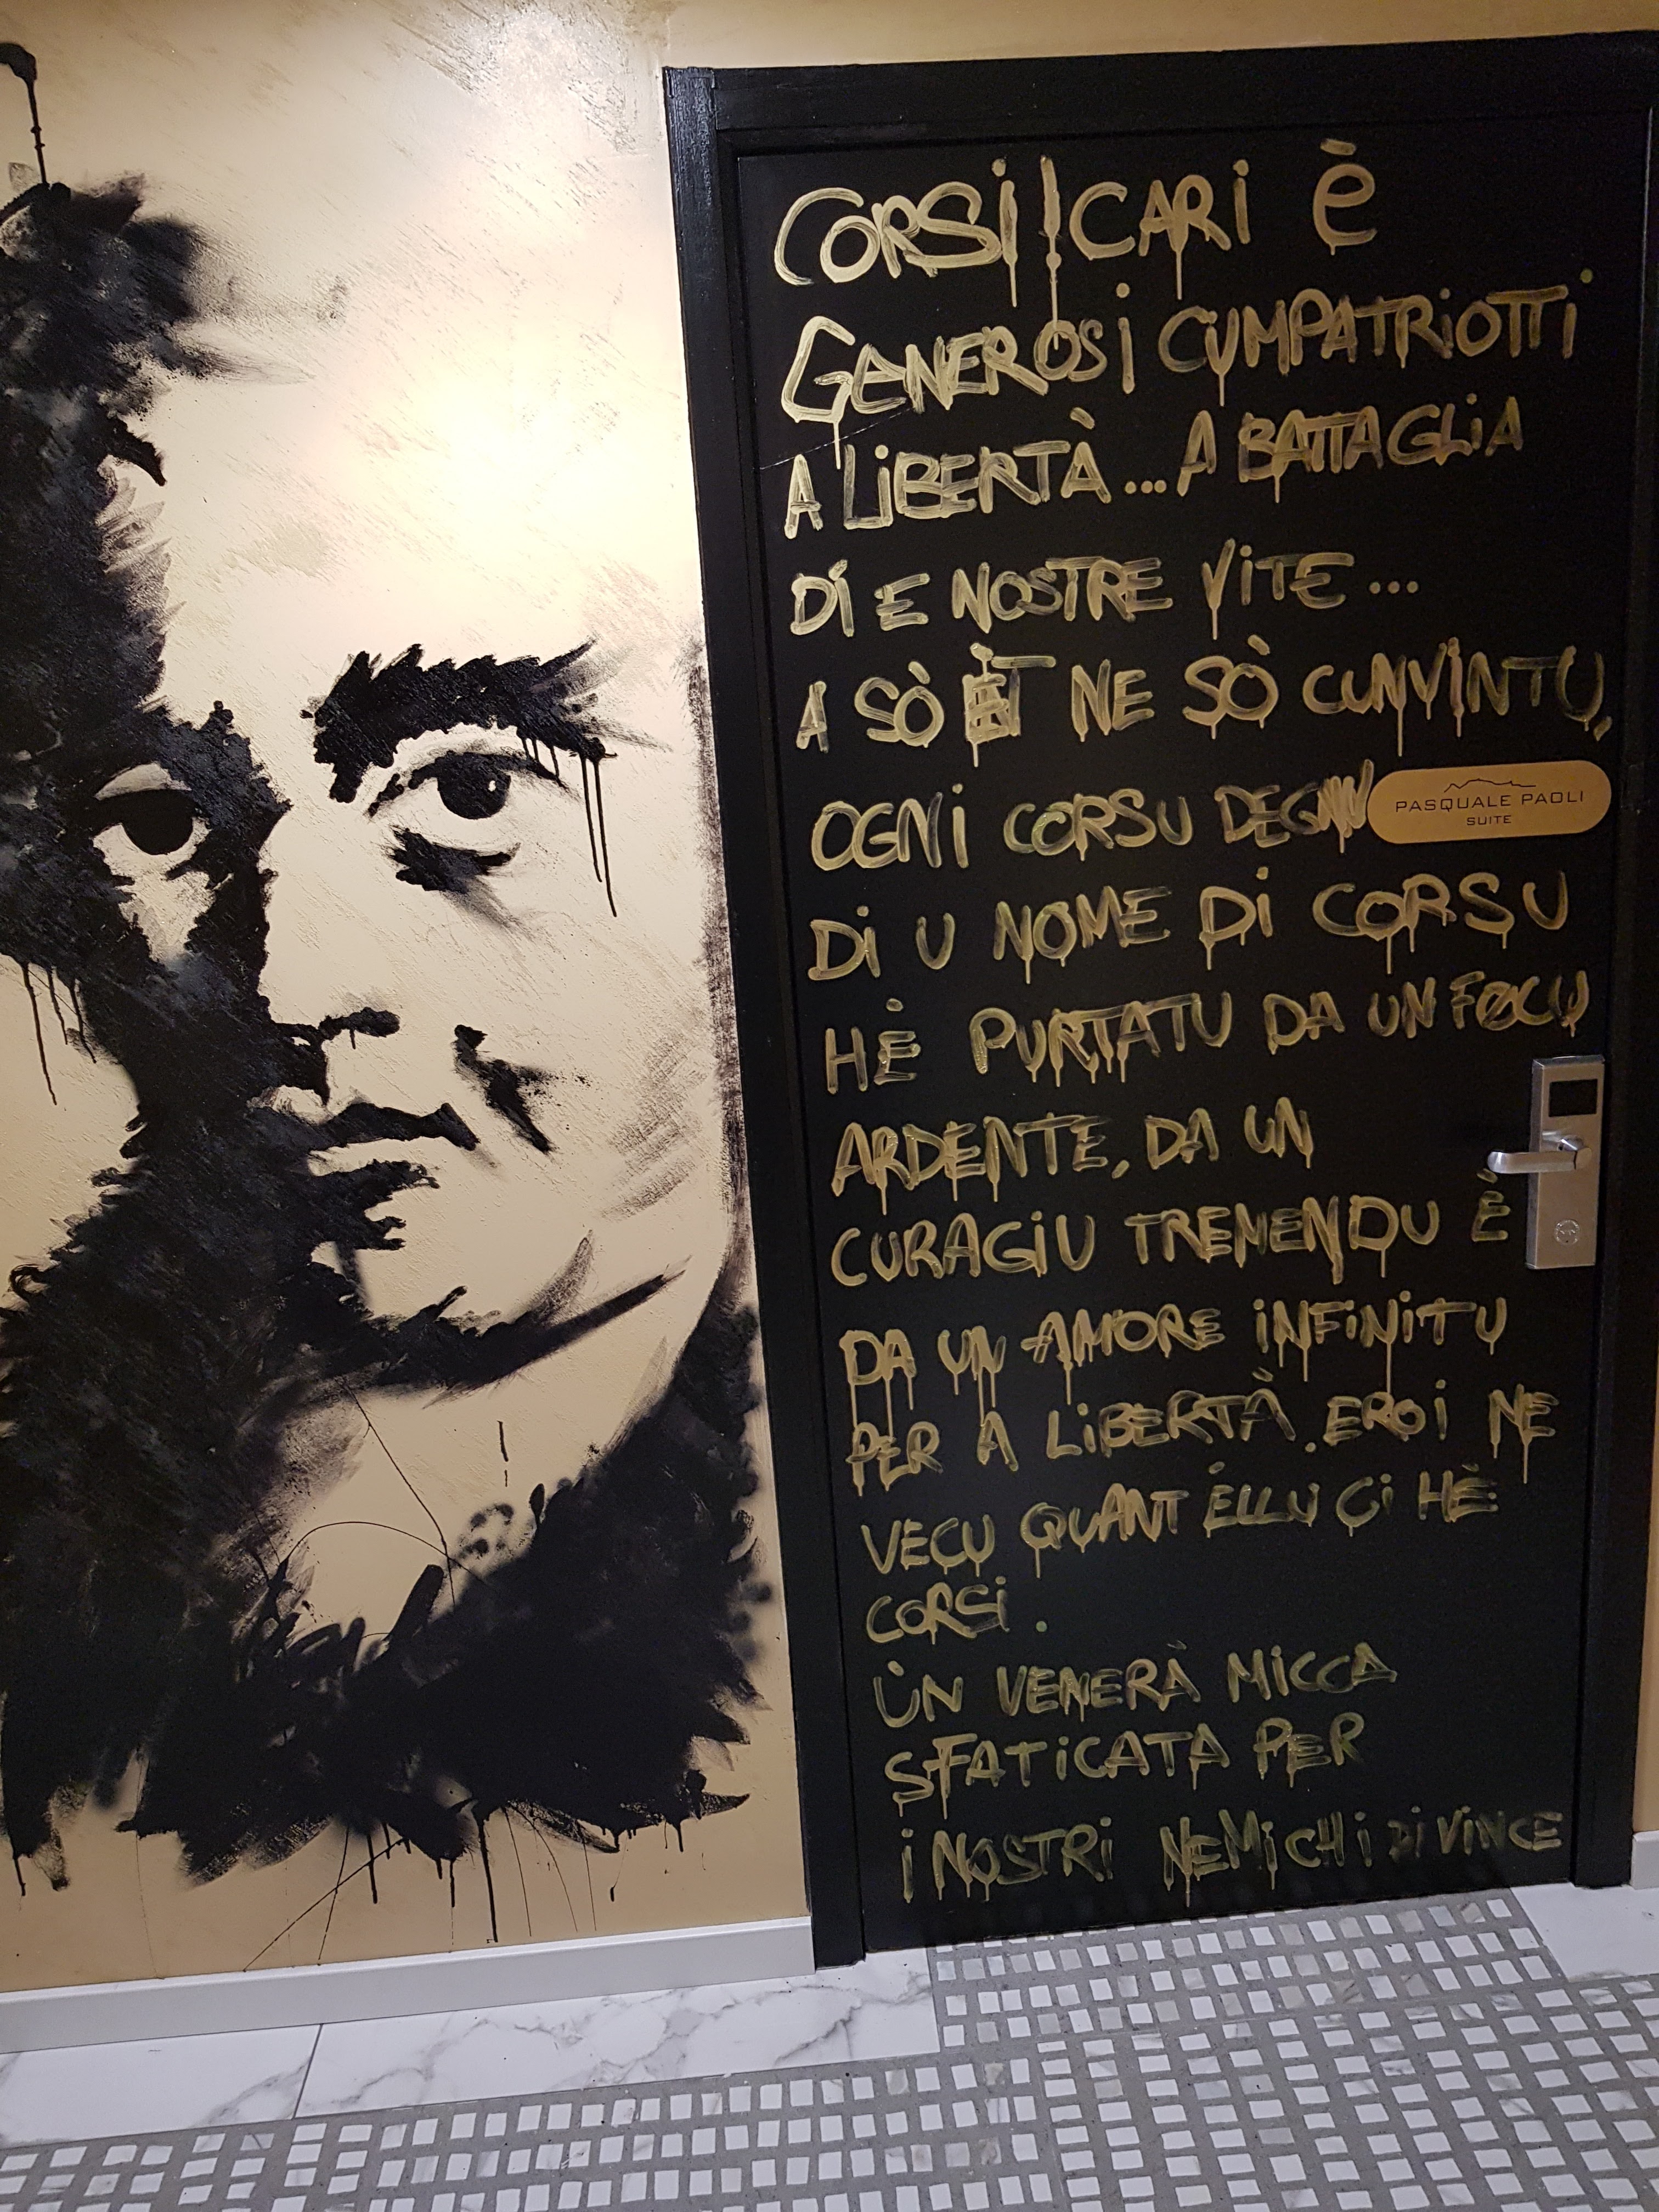 CORSI! CARI È
GENEROSI CUMPATRIOTTI
A LIBERTÀ... A BATTAGLIA
DI E NOSTRE VITE...
A SÒ NE SÒ CUNVINTU,
OGNI CORSU
PASQUALE PAOLI
SUITE
DI U NOME DI CORSU
HÈ PURTATU DA UN FOCU
ARDENTE, DA UN
CURAGIU TREMENDU È
DA UN AMORE INFINITU
PER A LIBERTÀ. EROI NE
VECU QUANT ÈLLU CI HÈ
CORSI.
ÙN VENERÀ MICCA
SFATICATA PER
I NOSTRI NEMICHI DI VINCE